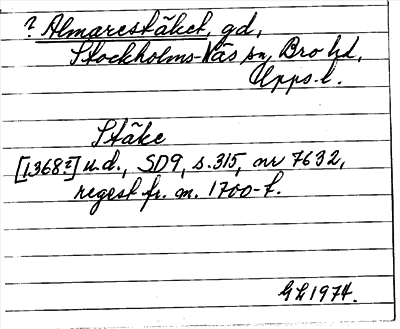 ? Almarestäket, gd,
Stockholms-Näs sn, Bro hd,
Upps.l.
Stäke
[1368?] u.d., SD9, s.315, nr 7632,
regest fr. m. 1700-t.
GL 1974.